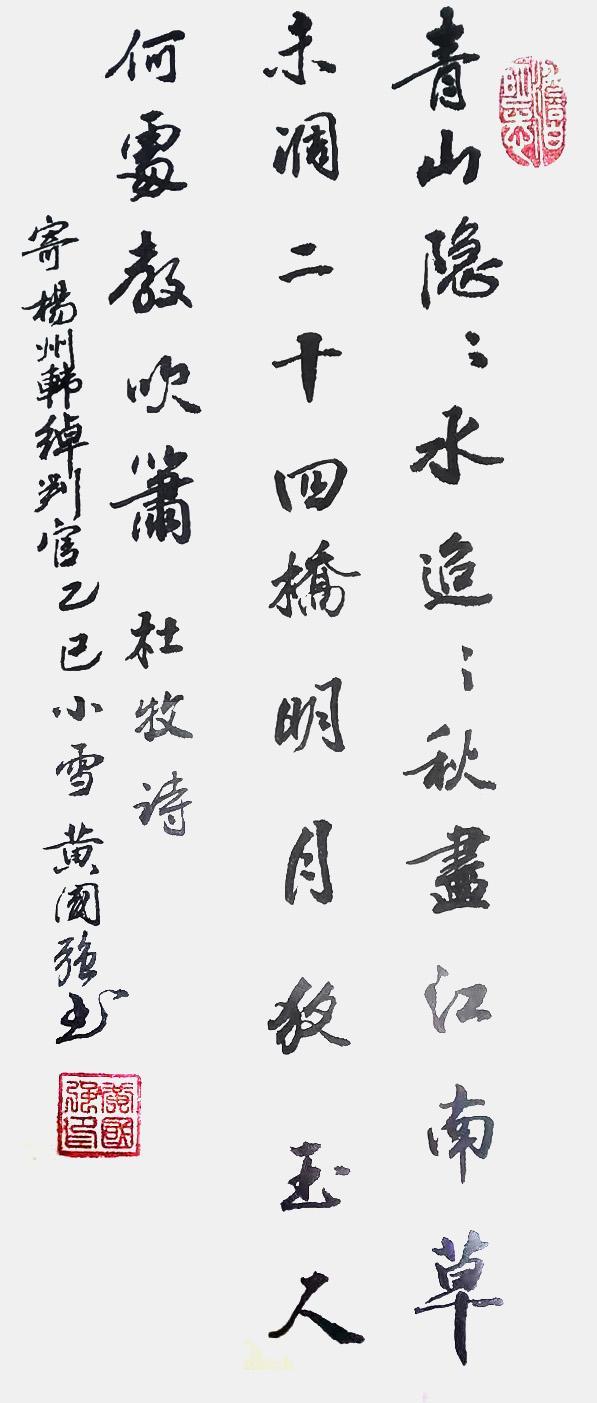 青山隐〻水迢〻秋盡江南草
未凋二十四橋明月夜玉人
何處教吹簫 杜牧诗
寄楊州韩綽判官乙巳小雪黄國强书
黄國强印